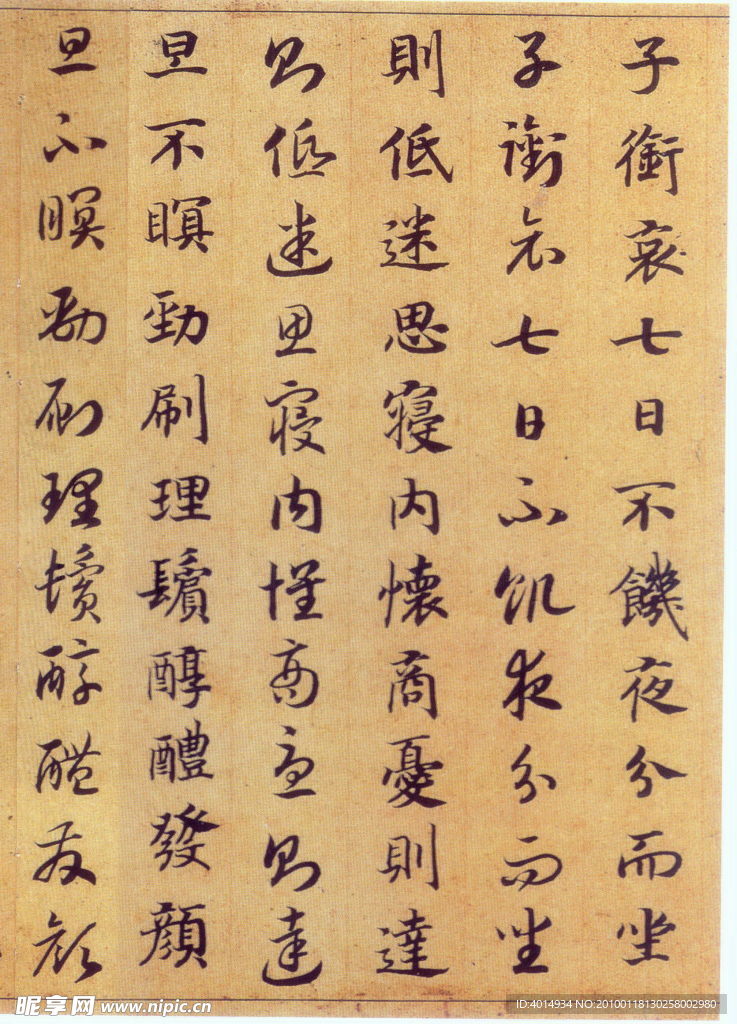 子銜哀七日不饑夜分而坐
子銜哀七日不饥夜分而坐
則低迷思寢內懷商憂則達
则低迷思寢內懷商憂则達
旦不瞑勁刷理鬢醇醴發顏
旦不瞑勁刷理鬢醇醴發顏
昵享网 www.nipic.cn
ID:4014934 NO:20100118130258002980